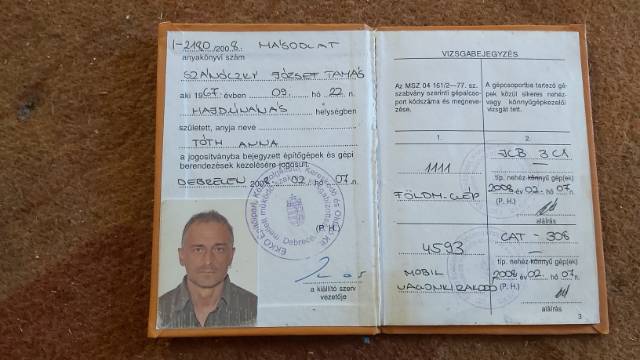 I-2180/2008. MÁSODLAT
anyakönyvi szám
JÓZSEF TAMÁS
aki 1967 évben 09. hó 22. n
HAJDÚNÁNÁS helységben
született, anyja neve
TÓTH ANNA
a jogosítványba bejegyzett építőgépek és gépi
berendezések kezelésére jogosult.
DEBRECEN 2008 02 hó 07. n
(P. H.)
a kiállító szerv
vezetője
VIZSGABEJEGYZÉS
Az MSZ 04 161/2—77. sz.
szabvány szerinti gépalcso-
port kódszáma és megneve-
zése.
A gépcsoportba tartozó gé-
pek közül sikeres nehéz-
vagy könnyűgépkezelői
vizsgát tett.
1.
2.
1111
JCB 3CX
típ. nehéz-könnyű gép(ek)
FÖLDM. GÉP
2008 év 02 hó 07.
(P. H.)
aláírás
4593
CAT - 308
típ. nehéz-könnyű gép(ek)
MOBIL
2008 év 02 hó 07. n
(P. H.)
aláírás
3